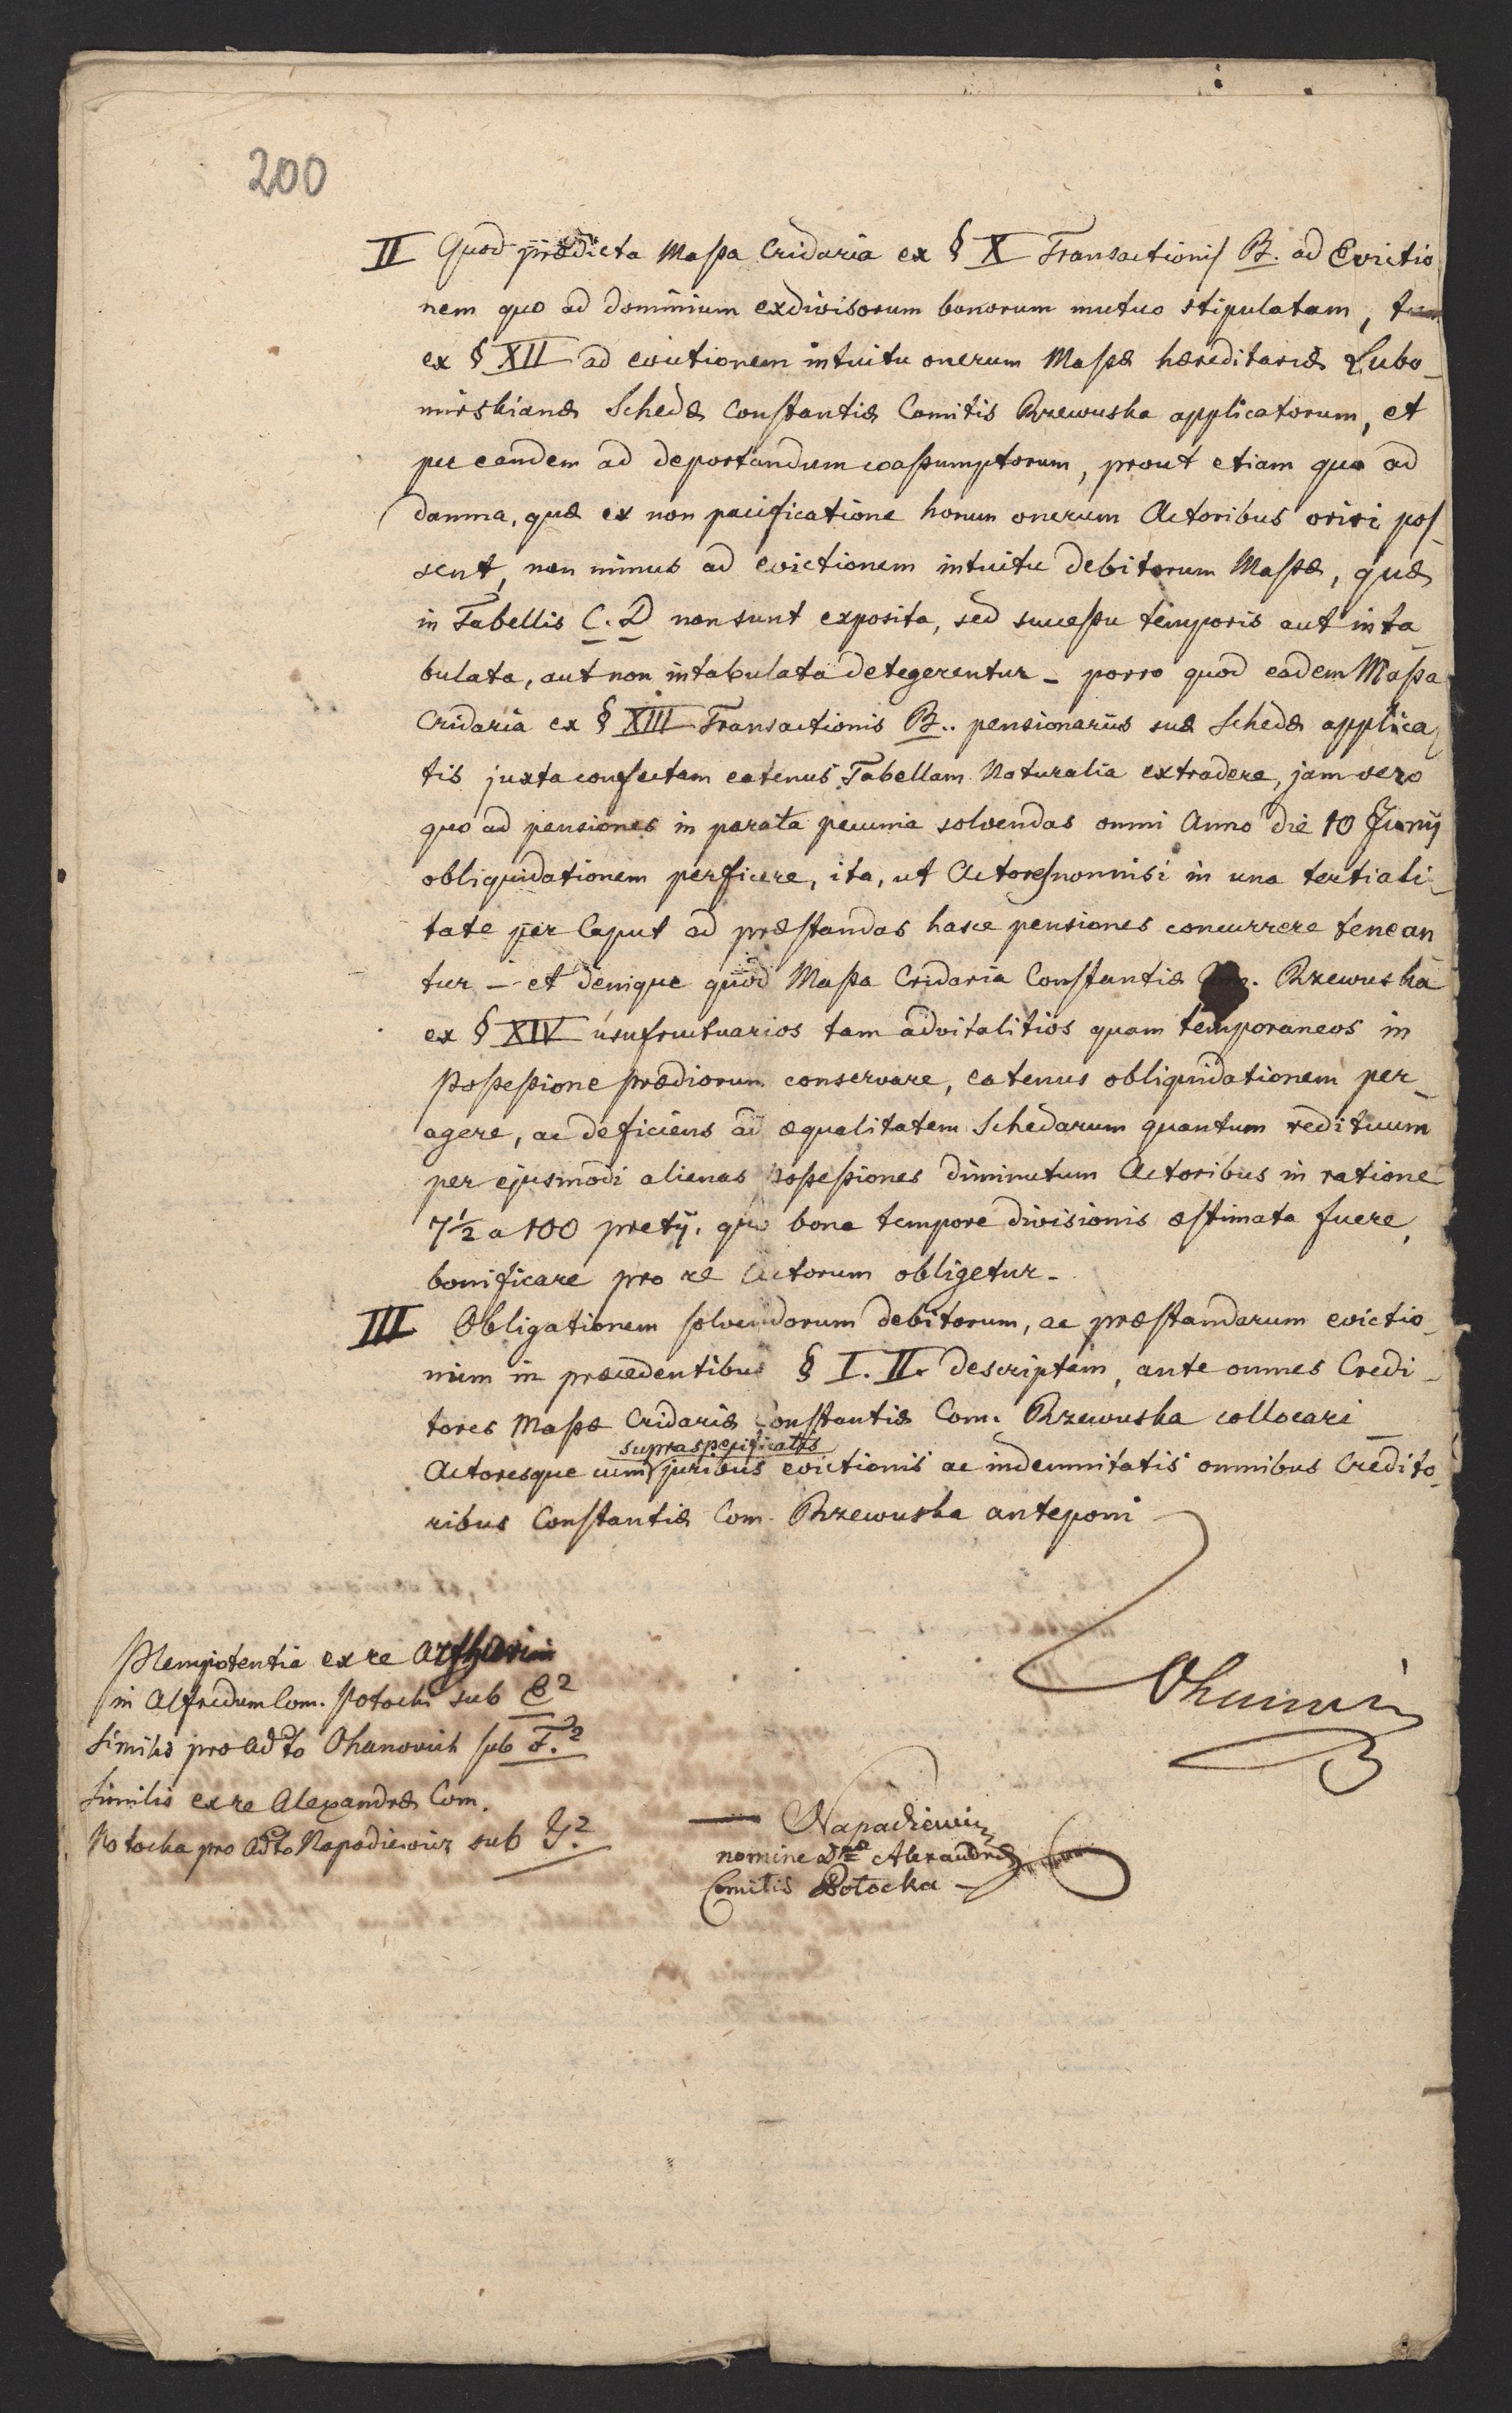 200
II Quod prædicta Massa Cridaria ex § X Transactionis B. ad Evictio
nem quo ad dominium exdivisorum bonorum mutuo stipulatam, tum
ex § XII ad evictionem intuitu onerum Massæ hæreditariæ Lubo_
mirskianæ Schedæ Constantiæ Comitis Rzewuska applicatorum, et
per eandem ad deportandum coassumptorum, prout etiam quo ad
damna, quæ ex non pacificatione horum onerum Actoribus oriri pos_
sent, non minus ad evictionem intuitu debitorum Massæ, quæ
in Tabellis C. D non sunt exposita, sed successu temporis aut inta
bulata, aut non intabulata detegerentur _ porro quod eadem Massa
Cridaria ex § XIII Transactionis B.. pensionariis suæ Schedæ applica
tis juxta confectam eatenus Tabellam Naturalia extradere, jam vero
quo ad pensiones in parata pecunia solvendas omni Anno die 10 Junij
obliquidationem perficere, ita, ut Actores nonnisi in una tertiali_
tate per Caput ad præstandas hasce pensiones concurrere tenean
tur _ et denique quod Massa Cridaria Constantiæ Com. Rzewuska
ex § XIV usufructuarios tam advitalitios quam temporaneos in
Possessione prædiorum conservare, eatenus obliquidationem per_
agere, ac deficiens ad æqualitatem Schedarum quantum redituum
per ejusmodi alienas possessiones diminutum Actoribus in ratione
7½ a 100 pretij, quo bona tempore divisionis æstimata fuere,
bonificare pro re Actorum obligetur _
III Obligationem solvendorum debitorum, ac præstandarum evictio_
num in præcedentibus § I. II. descriptam, ante omnes Credi_
tores Massæ Cridariæ Constantiæ Com. Rzewuska collocari _
supraspecificatis
Actoresque cum juribus evictionis ac indemnitatis omnibus Credito_
ribus Constantiæ Com. Rzewuska anteponi
Plenipotentia ex re
in Alfredum Com. Potocki sub E²
Similis pro Adto Ohanovich sub F.²
Similis ex re Alexandræ Com.
Potocka pro Adto Napadiewicz sub G.²
Napadiewicz
nomine Dnæ Alexandræ
Comitis Potocka